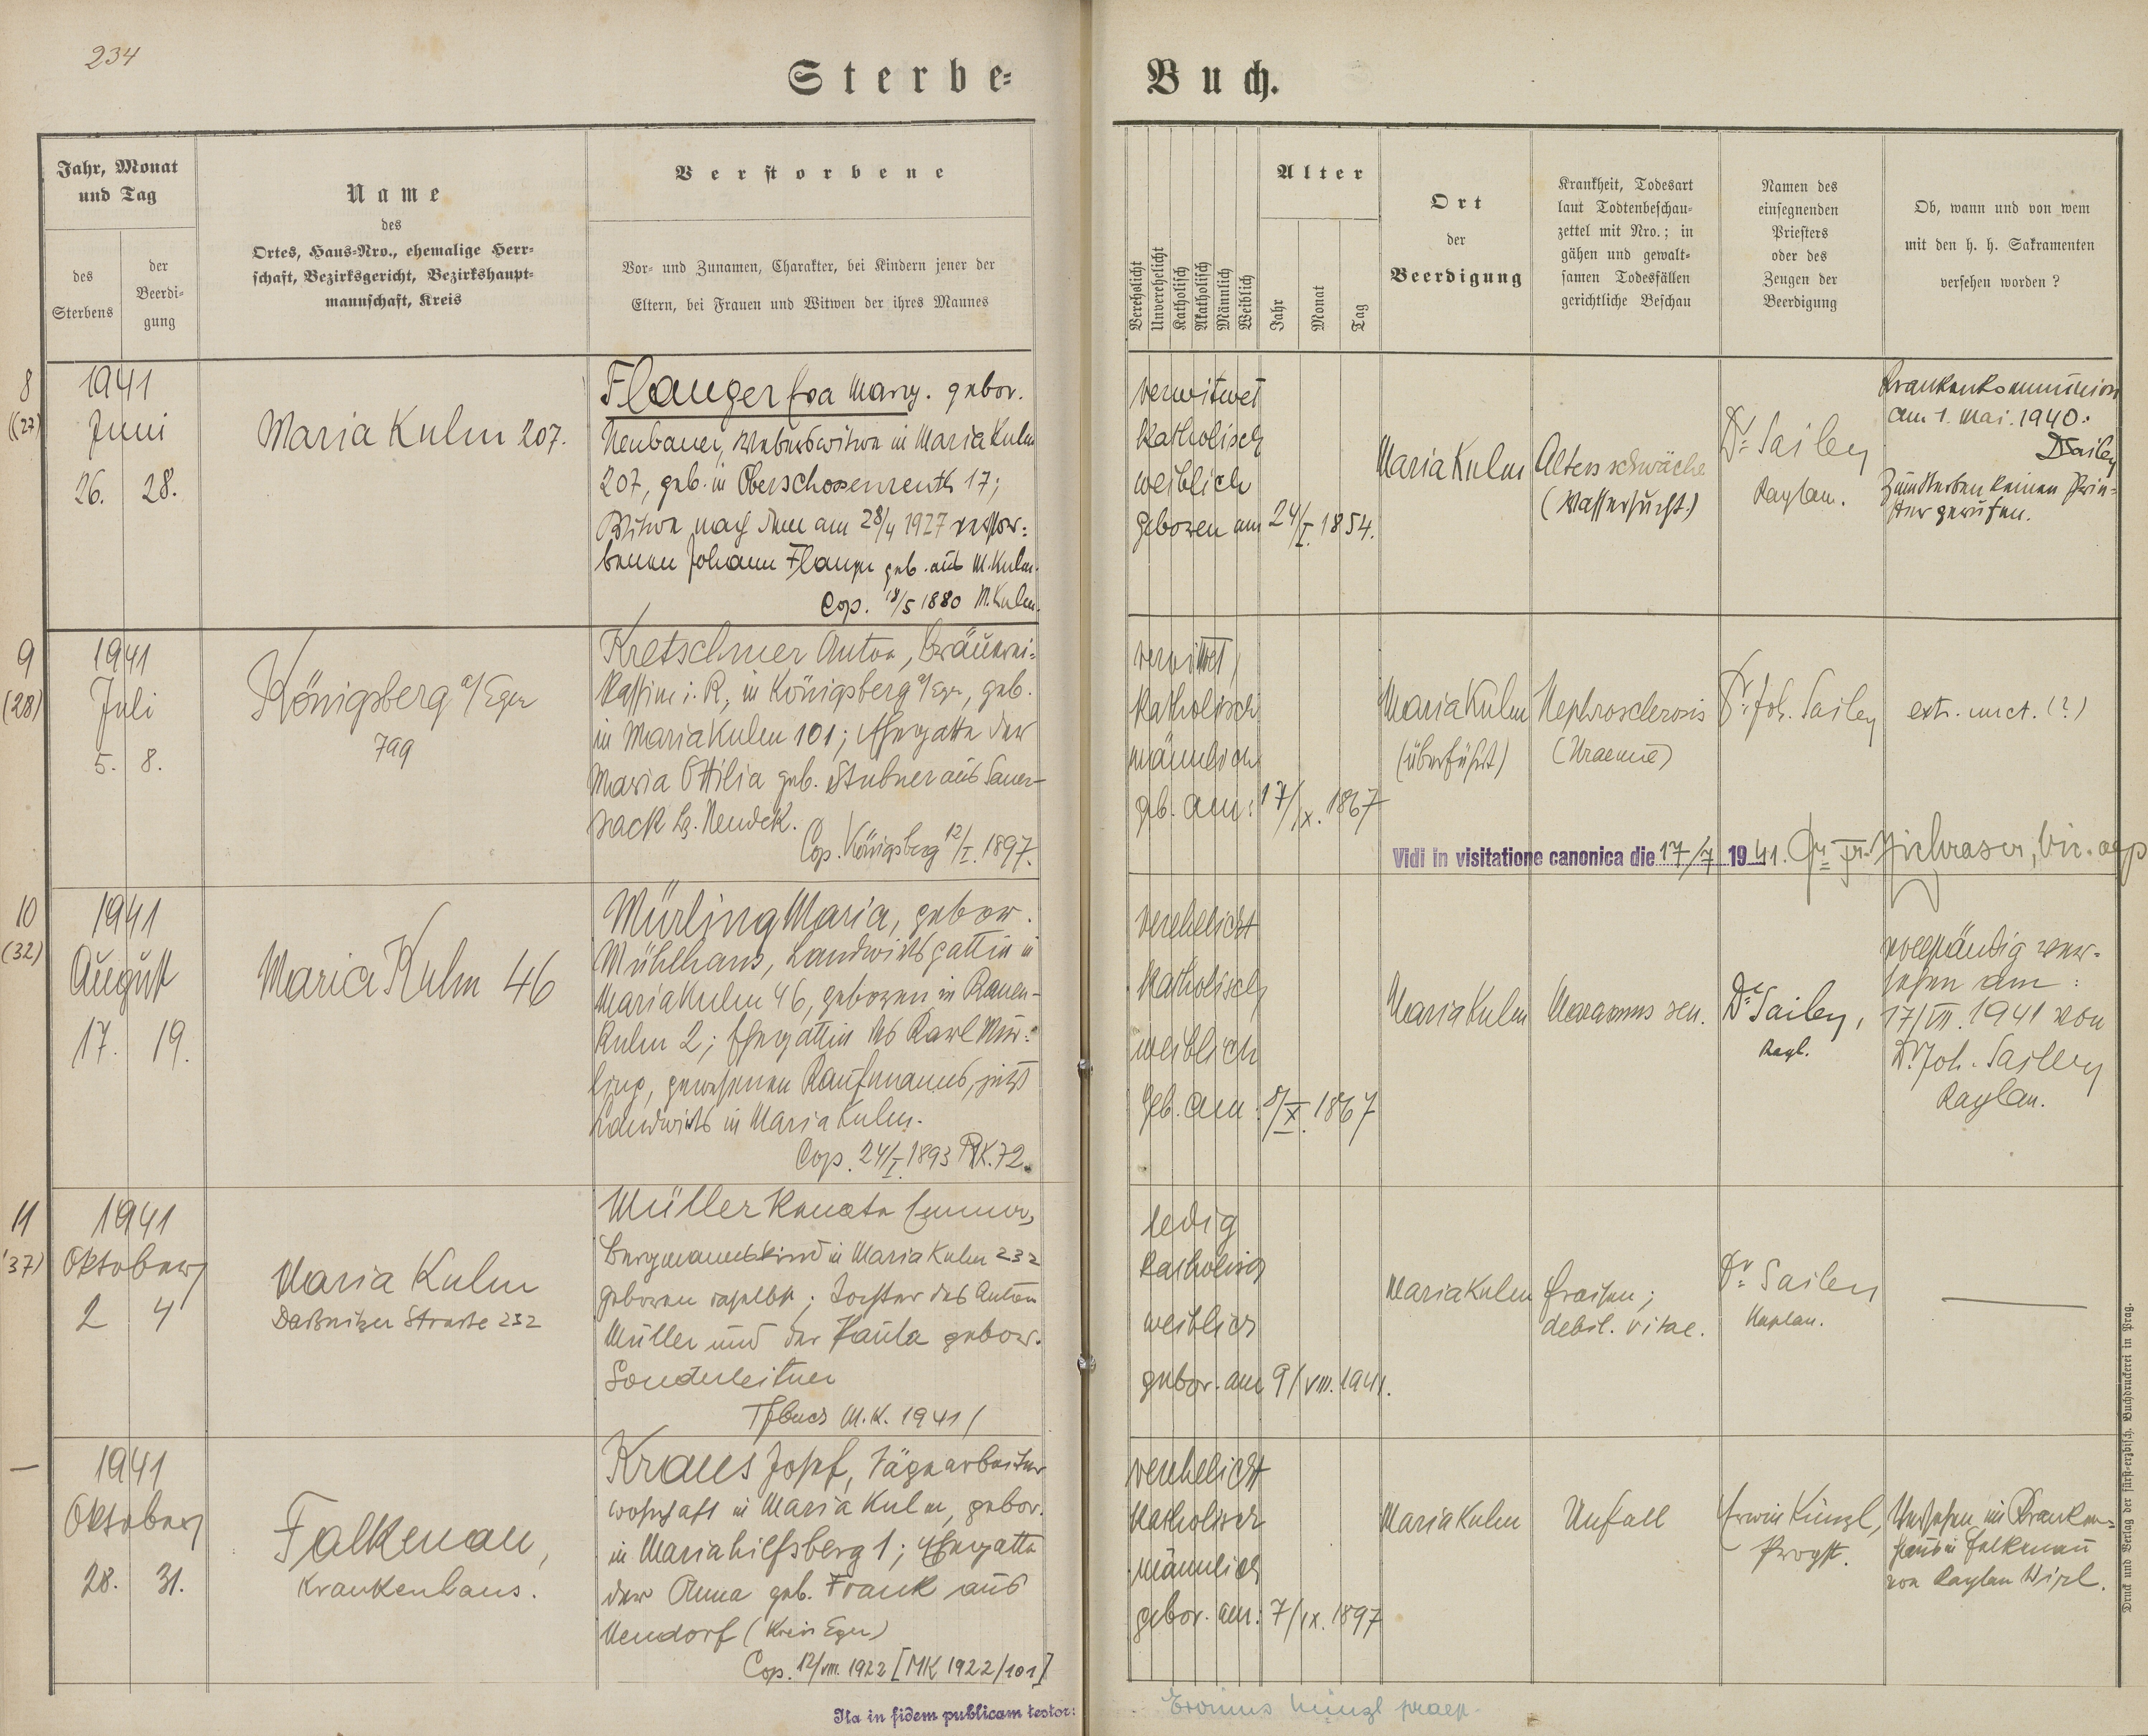 234
Sterbe-
Buch.
Jahr, Monat
und Tag
des
Sterbens
der
Beerdi-
gung
Name
des
Ortes, Haus-Nro., ehemalige Herr-
schaft, Bezirksgericht, Bezirkshaupt-
mannschaft, Kreis
Verstorbene
Vor- und Zunamen, Charakter, bei Kindern jener der
Eltern, bei Frauen und Witwen der ihres Mannes
Verehelicht
Unverehelicht
Katholisch
Akatholisch
Männlich
Weiblich
Alter
Jahr
Monat
Tag
Ort
der
Beerdigung
Krankheit, Todesart
laut Todtenbeschau-
zettel mit Nro.; in
gähen und gewalt-
samen Todesfällen
gerichtliche Beschau
Namen des
einsegnenden
Priesters
oder des
Zeugen der
Beerdigung
Ob, wann und von wem
mit den h. h. Sakramenten
versehen worden ?
8
(27)
1941
Juni
26. 28.
Maria Kulm 207.
Flauger Eva Marg. gebor.
Neubauer, Weberswitwe in Maria Kulm
207, geb. in Oberschossenreuth 17;
Witwe nach dem am 28/4 1927 verstor-
benen Johann Flauger geb. aus M. Kulm.
Cop. 18/5 1880 M. Kulm.
verwitwet
katholisch
weiblich
geboren am 24/I. 1854.
Maria Kulm
Altersschwäche
(Wassersucht.)
Dr. Sailer
Kaplan.
Krankenkommunion
am 1. Mai. 1940:
DSailer
Zum Sterben keinen Prie-
ster gerufen.
9
(28)
1941
Juli
5. 8.
Königsberg a/Eger
799
Kretschmer Anton, Bräuerei-
kassier i. R., in Königsberg a/Eger, geb.
in Maria Kulm 101; Ehegatte der
Maria Ottilia geb. Stubner aus Sauer-
sack Bz. Neudek.
Cop. Königsberg 12/I. 1897.
verwitwet,
katholisch
männlich
geb. am: 17/IX. 1867
Maria Kulm
(überführt)
Nephrosclerosis
(Uraemie)
Dr. Joh. Sailer
extr. unct. (?)
Vidi in visitatione canonica die 17/7 1941.
10
(32)
1941
August
17. 19.
Maria Kulm 46
Mürling Maria, gebor.
Mühlhans, Landwirtsgattin in
Maria Kulm 46, geboren in Rauen-
kulm 2; Ehegattin des Karl Mür-
ling, gewesenen Kaufmanns, jetzt
Landwirts in Maria Kulm.
Cop. 24/I. 1893 MK. 72.
verehelicht
katholisch
weiblich
geb. am: 8/X. 1867
Maria Kulm
Marasmus sen.
Dr. Sailer,
Kapl.
vollständig ver-
sehen am:
17/VII. 1941 von
Dr. Joh. Sailer
Kaplan.
11
(37)
1941
Oktober
2 4
Maria Kulm
Daßnitzer Strasse 232
Müller Renate Emma,
Bergmannskind in Maria Kulm 232
geboren daselbst; Tochter des Anton
Müller und der Paula gebor.
Sonderleitner
Tfbuch M. K. 1941/
ledig
katholisch
weiblich
gebor. am 9/VIII. 1941.
Maria Kulm
Fraisen;
debil. vitae.
Dr. Sailer
Kaplan.
—
—
1941
Oktober
28. 31.
Falkenau,
Krankenhaus.
Kraus Josef, Sägearbeiter
wohnhaft in Maria Kulm, gebor.
in Mariahilfsberg 1; Ehegatte
der Anna geb. Frank aus
Neudorf (Kreis Eger)
Cop. 12/VIII. 1922 [MK 1922/101]
verehelicht
katholisch
männlich
gebor. am: 7/IX. 1897
Maria Kulm
Unfall
Erwin Künzl,
Propst.
Versehen im Kranken-
haus in Falkenau
von Kaplan Wirl.
Ita in fidem publicam testor:
Erwinus Künzl praep.
Druck und Verlag der fürst-erzbisch. Buchdruckerei in Prag.